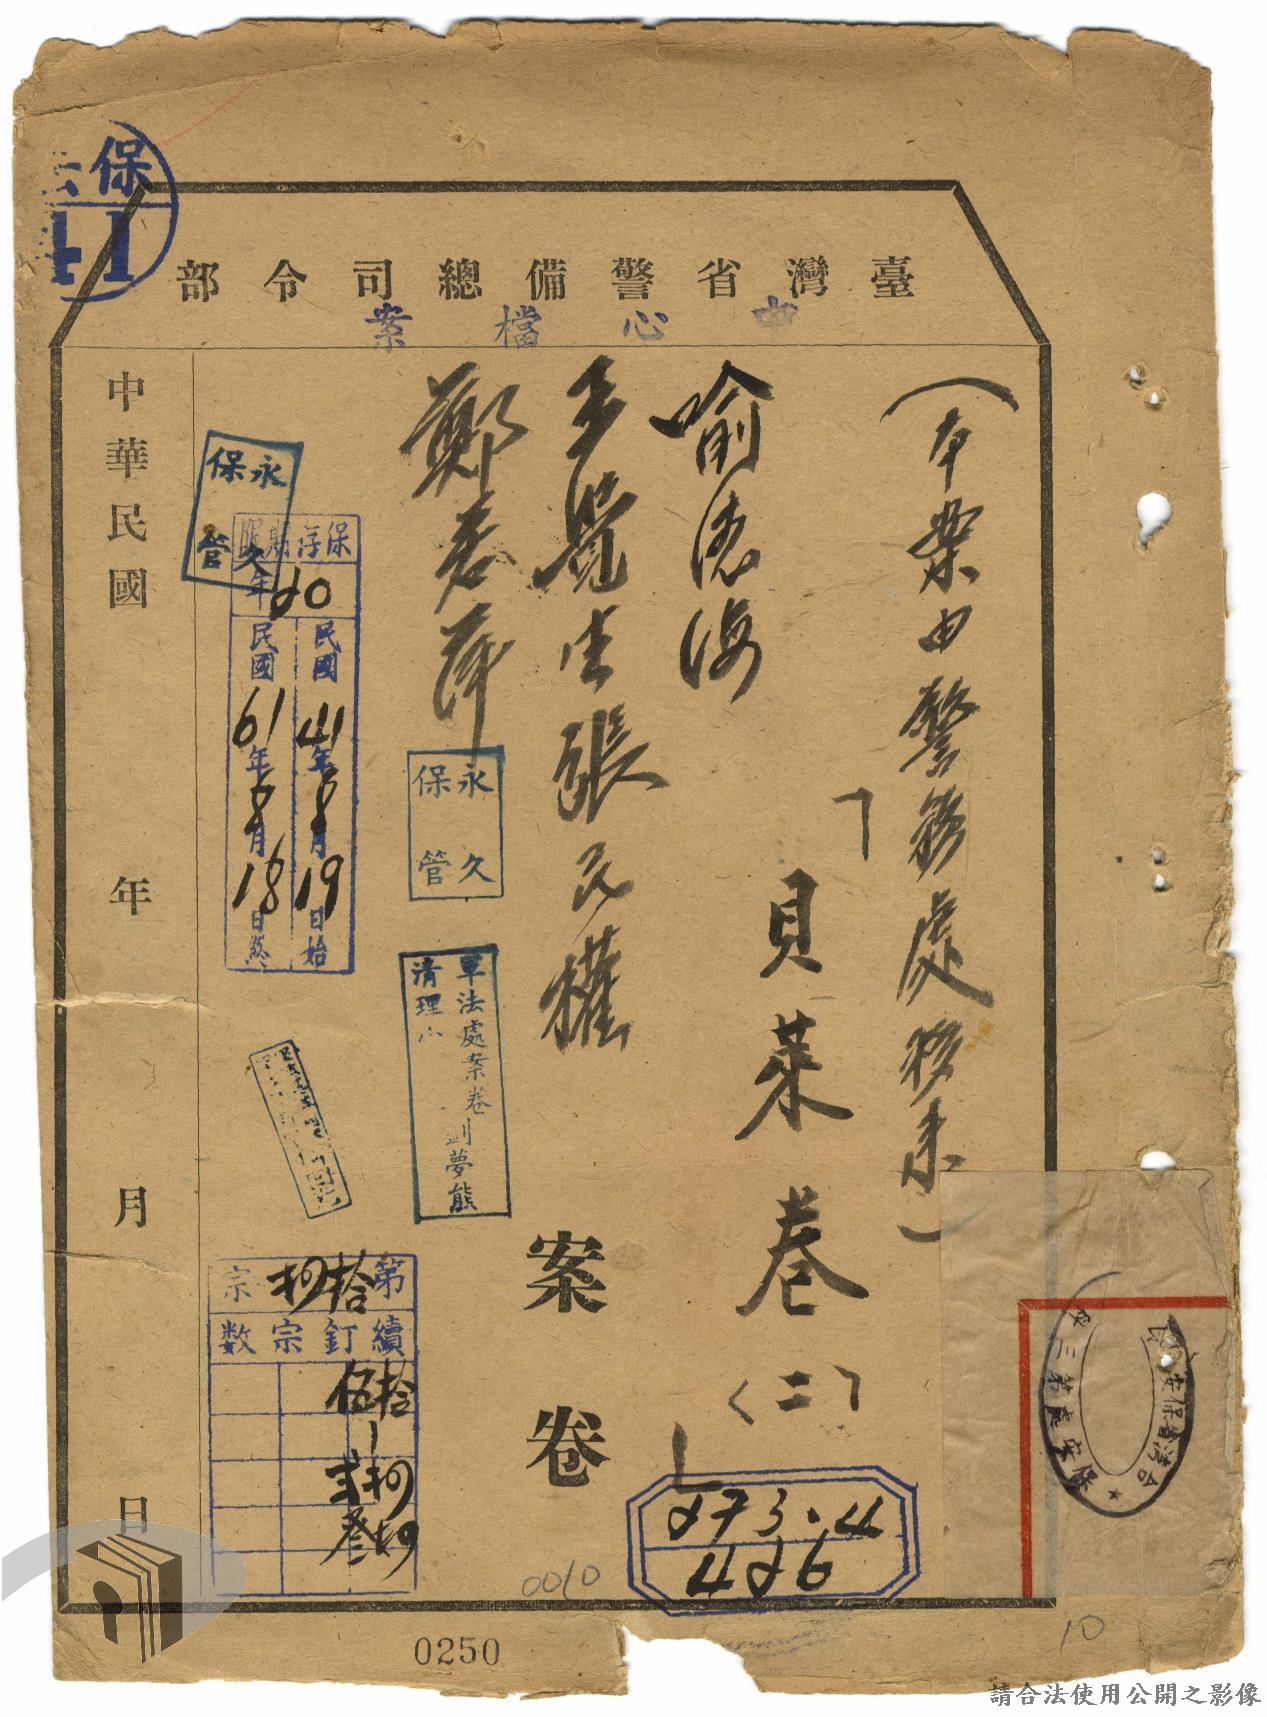 保
41
臺灣省警備總司令部
中心檔案
（本案由警務處移來）
「貝萊卷〈二〉」
喻德海
王覺生張民權
鄭若萍
案卷
永久保管
保存期限
20年
民國41年8月19日始
民國61年8月18日終
永久保管
軍法處案卷
清理小
劉夢熊
第拾捌宗
續釘宗數
中華民國 年 月 日
保安處第三
0010
273.4
426
0250
10
請合法使用公開之影像